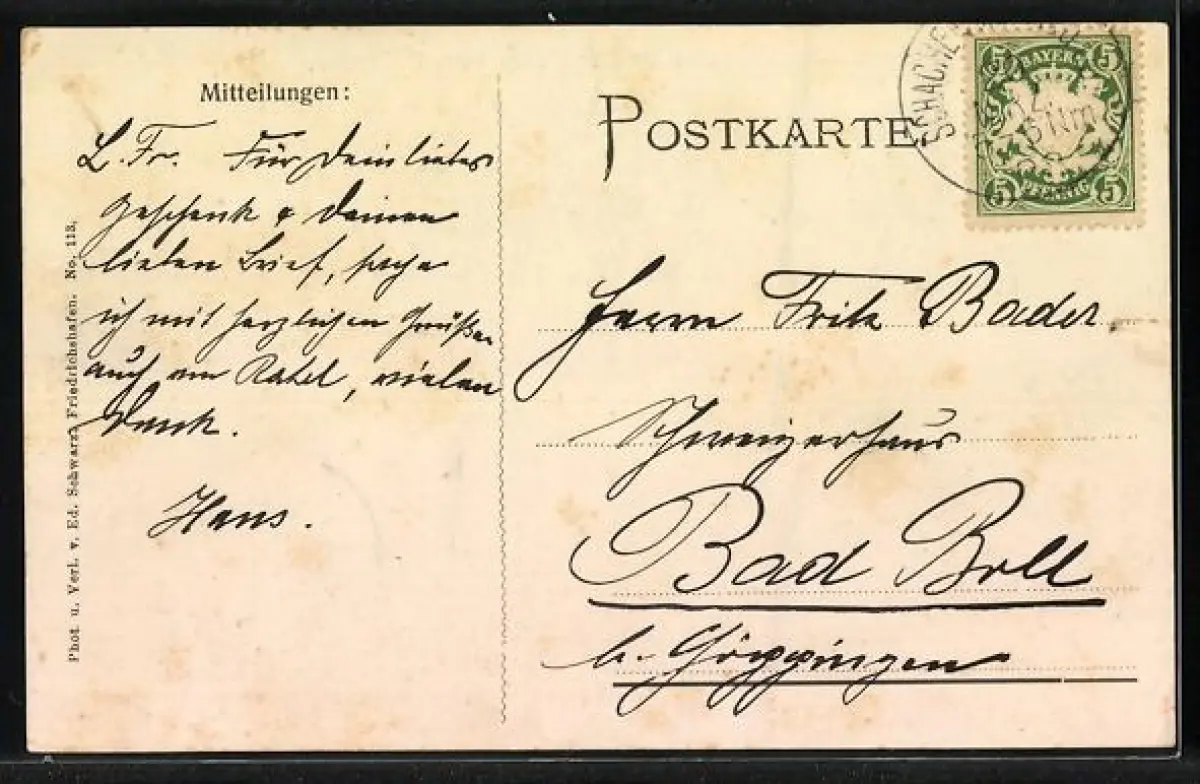 Mitteilungen:
L. Fr. Für Dein liebes
Geschenk & Deinen
lieben Brief, sage
ich mit herzlichen Grüßen
auch an Rahel, vielen
Dank.
Hans.
Phot. u. Verl. v. Ed. Schwarz, Friedrichshafen. No. 113.
POSTKARTE
SCHACHEN
6 Nm
5 BAYERN 5
5 PFENNIG 5
Herrn Fritz Bader.
Schweizerhaus
Bad Boll
b. Göppingen